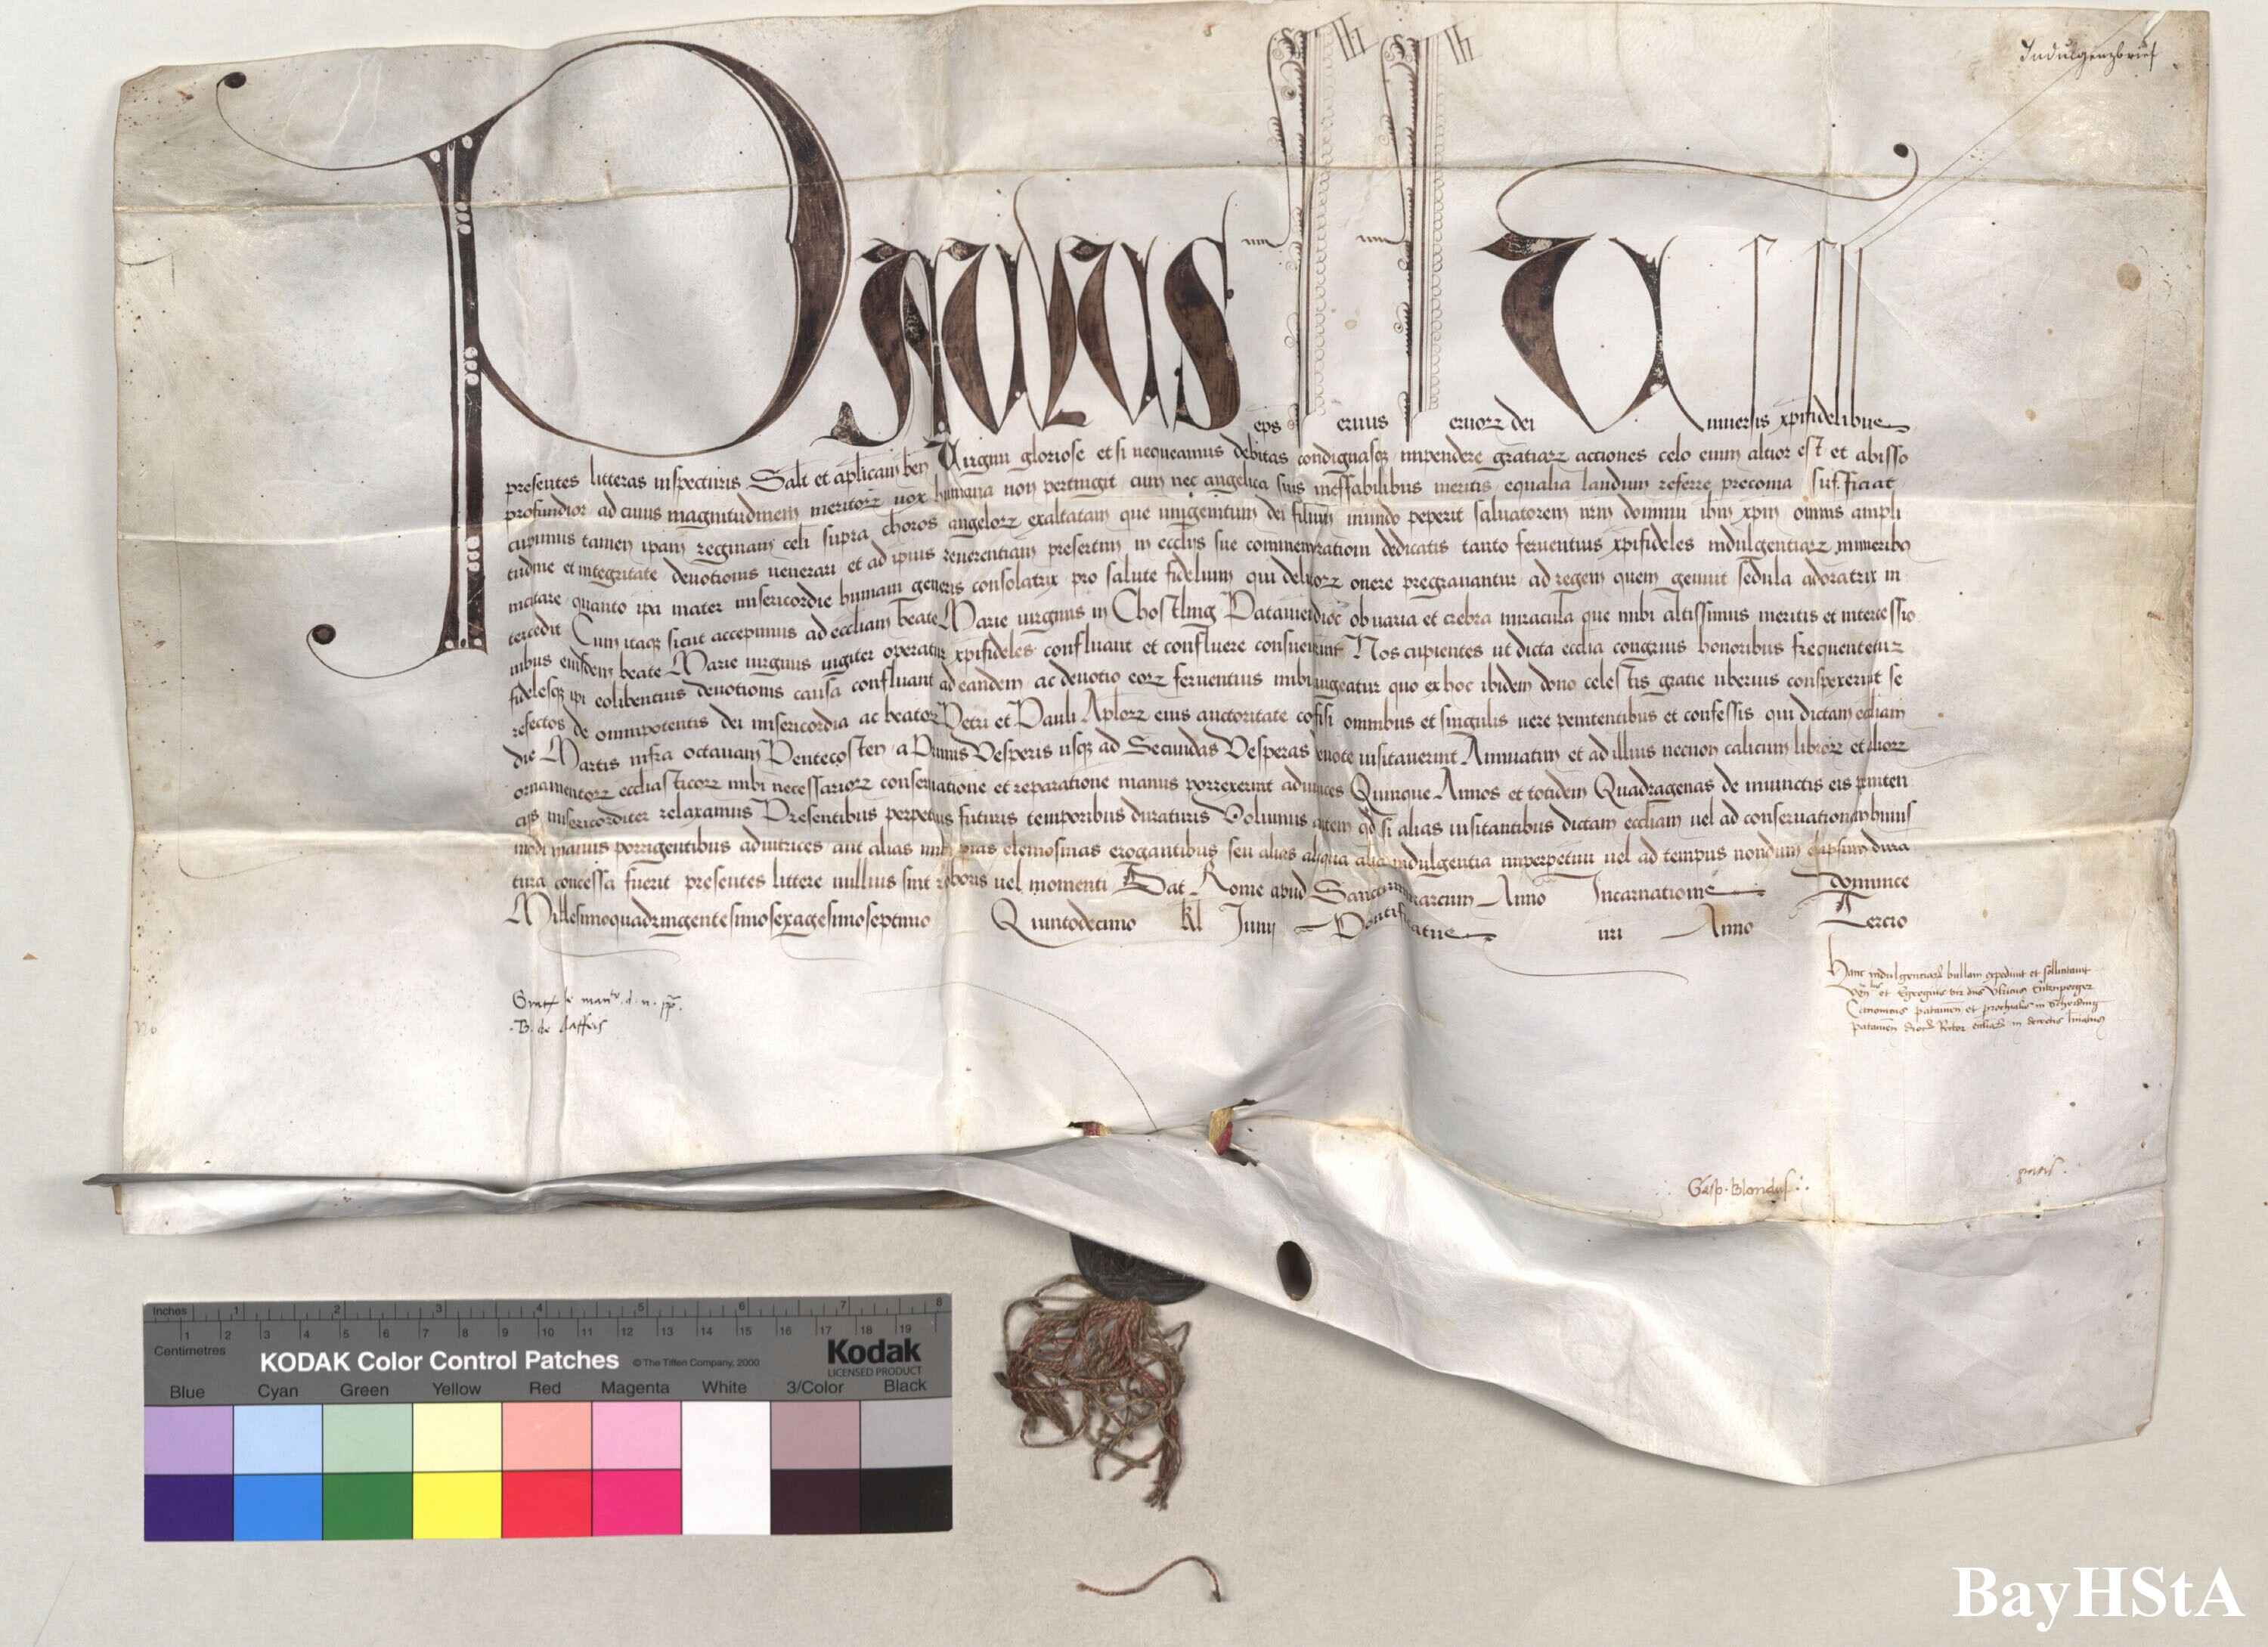 Indulgenzbrief
Paulus eps seruus seruorz dei Uniuersis xpifidelibus
presentes litteras inspecturis Salt et aplicam ben Uirgini gloriose et si nequeamus debitas condignasq impendere gratiarz acciones celo enim altior est et abisso
profundior ad cuius magnitudinem meritorz uox humana non pertingit cum nec angelica suis ineffabilibus meritis equalia laudum referre preconia sufficiat
cupimus tamen ipam reginam celi supra choros angelorz exaltatam que unigenitum dei filium mundo peperit saluatorem nrm dominu ihm xpm omnis ampli
tudine et integritate deuotionis uenerari et ad ipius reuerentiam presertim in ecclijs sue commemorationi dedicatis tanto feruentius xpifideles indulgentiarz muneribus
incitare quanto ipa mater misericordie humani generis consolatrix pro salute fidelium qui delictorz onere pregrauantur ad regem quem genuit sedula adoratrix in
tercedit Cum itaq sicut accepimus ad eccliam beate Marie uirginis in Chostling Patauien dioc ob uaria et crebra miracula que inibi altissimus meritis et intercessio
nibus eiusdem beate Marie uirginis iugiter operatur xpifideles confluant et confluere consueuerint Nos cupientes ut dicta ecclia congruis honoribus frequentetur
fidelesq ipi eo libentius deuotionis causa confluant ad eandem ac deuotio eorz feruentius inibi augeatur quo ex hoc ibidem dono celestis gratie uberius conspexerint se
refectos de omnipotentis dei misericordia ac beatorz Petri et Pauli Aplorz eius auctoritate cofisi omnibus et singulis uere penitentibus et confessis qui dictam eccliam
die Martis infra octauam Pentecosten a Primis Vesperis usq ad Secundas Vesperas deuote uisitauerint Annuatim et ad illius necnon calicum librorz et aliorz
ornamentorz ecclasticorz inibi necessariorz conseruatione et reparatione manus porrexerint adiutrices Quinque Annos et totidem Quadragenas de iniunctis eis peniten
cijs misericorditer relaxamus Presentibus perpetuis futuris temporibus duraturis Volumus autem qd si alias uisitantibus dictam eccliam uel ad conseruationem huius
modi manus porrigentibus adiutrices aut alias inibi pias elemosinas erogantibus seu alias aliqua alia indulgentia imperpetuu uel ad tempus nondum elapsum dura
tura concessa fuerit presentes littere nullius sint roboris uel momenti Dat Rome apud Sanctummarcum Anno Incarnationis dominice
Millesimoquadringentesimosexagesimoseptimo Quintodecimo kl Junij Pontificatus nri Anno Tercio
Hanc indulgentiarz bullam expediuit et sollicitauit
et Egregius vir dns Vlricus
Canonicus patauien et prochialis in Scherding
patauien dioc Rector ecclie in decretis
de manto d. n. pp.
B. de Maffeis
Gasp. Blondus
Inches 1 2 3 4 5 6 7 8
1 2 3 4 5 6 7 8 9 10 11 12 13 14 15 16 17 18 19
Centimetres
KODAK Color Control Patches © The Tiffen Company, 2000 Kodak
LICENSED PRODUCT
Blue Cyan Green Yellow Red Magenta White 3/Color Black
BayHStA